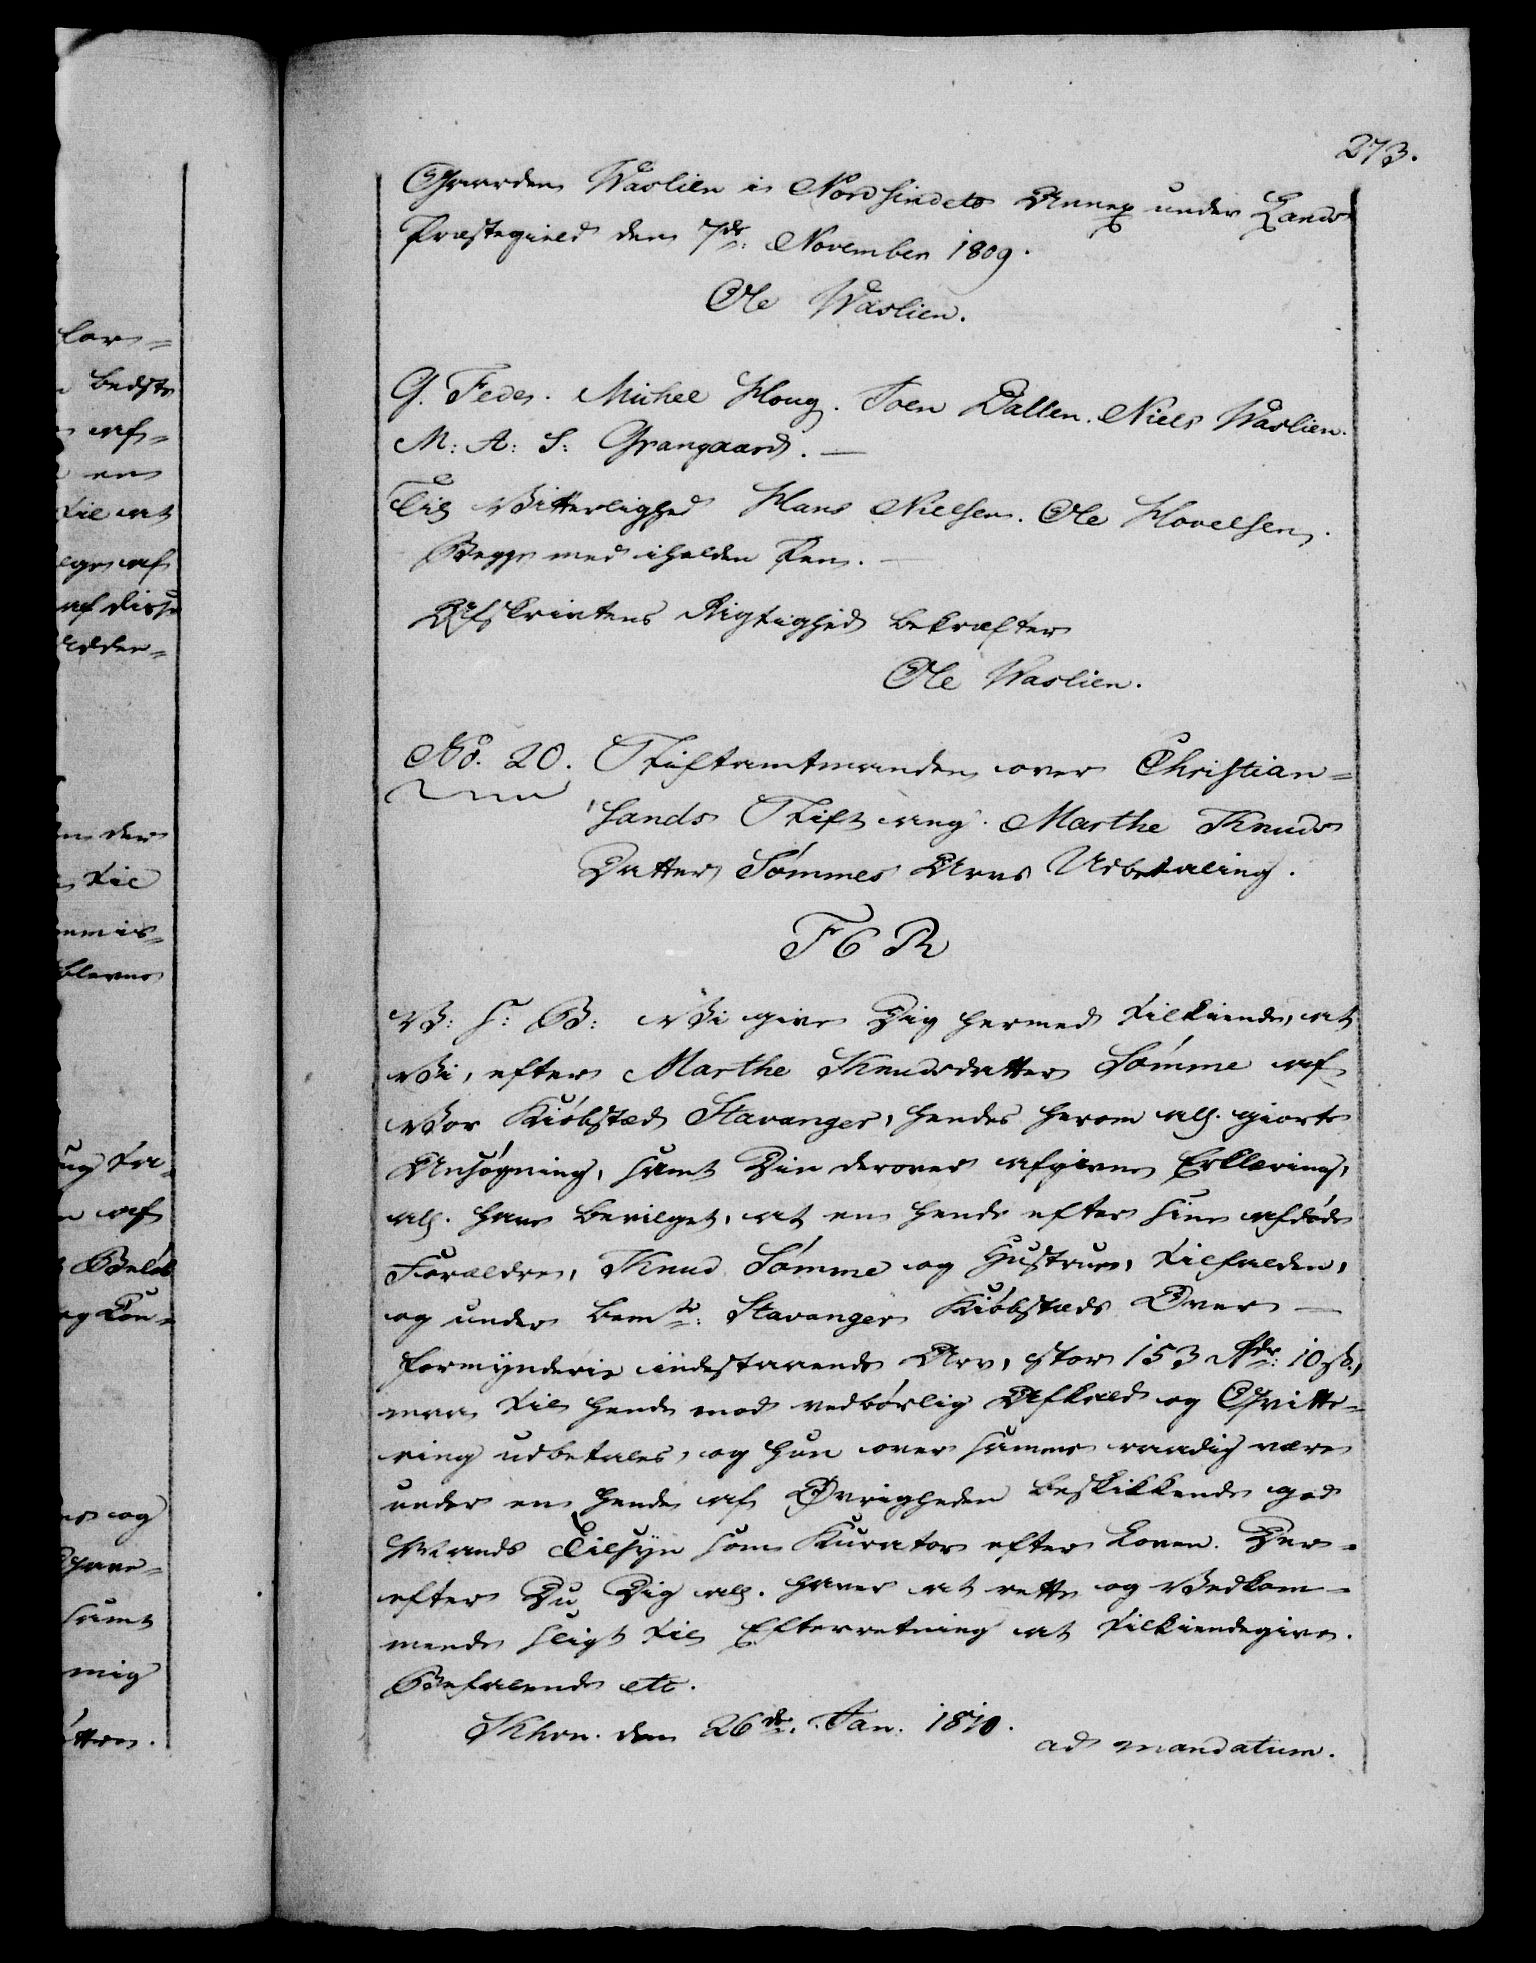 273.
Gaarden Waslien i Nordsindets Annex under Lands
Præstegield den 7de: November 1809.
Ole Waslien.
G. Fedes. Michel Houg. Joen Dallen. Niels Waslien.
M: A: S: Grangaard. —
Til Vitterlighed Hans Nielsen. Ole Hovelsen.
Begge med iholden Pen. —
Afskrivtens Rigtighed bekræfter
Ole Waslien.
No. 20. Stiftamtmanden over Christian=
sands Stift ang. Marthe Knuds
Datter Sømmes Arvs Udbetaling.
F6R
V: S: G: Vi give Dig hermed tilkiende, at
Vi, efter Marthe Knudsdatter Sømme af
Vor Kiøbstæd Stavanger, hendes herom all. giorte
Ansøgning, samt Din derover afgivne Erklæring,
all. have bevilget, at en hende efter sine afdøde
Forældre, Knud Sømme og Hustrue, tilfalden,
og under bemte: Stavanger Kiøbstæds Over —
formynderie indestaaende Arv, stor 153 Rdr: 10 sk.,
maa til hende mod vedbørlig Afkald og Qvitte=
ring udbetales, og hun over samme raadig være
under en hende af Øvrigheden beskikkende god
Mands Tilsyn som Kurator efter Loven. Der=
efter Du Dig all. haver at rette og Vedkom=
mende sligt til Efterretning at tilkiendegive.
Befalende etc.
Khvn. den 26de. Jan. 1810.
ad mandatum.
for=
bedste
af=
en
til at
af
af disse
der
til
commis=
bleven
af
Beløb
og Con=
og
have=
samt
mig